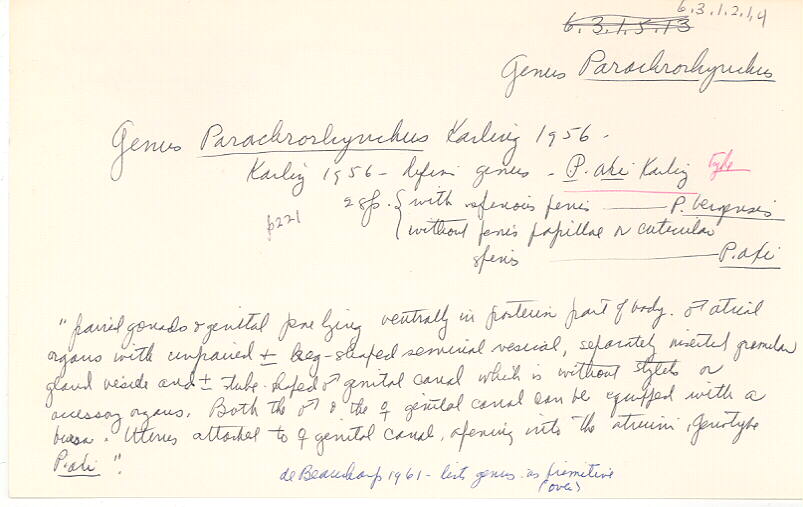 6.3.1.2.1.4
6.3.1.5.13
Genus Parachrorhynchus
Genus Parachrorhynchus Karling 1956 -
Karling 1956 - defin genus - P. axi Karling Type
2 sp. { with spinous penis — P. bergensis
p221
without penis papillae or cuticular
spenis — P. axi
"paired gonads & genital pore lying ventrally in posterior part of body. ♂ atrial
organs with unpaired ± bag-shaped seminal vesical, separately inserted granular
gland vesicle and ± tube-shaped ♂ genital canal which is without stylets or
accessory organs. Both the ♂ & the ♀ genital canal can be equipped with a
bursa. Uterus attached to ♀ genital canal, opening into the atrium, Genotype
P. axi".
de Beauchamp 1961 - lists genus as primitive
(over)